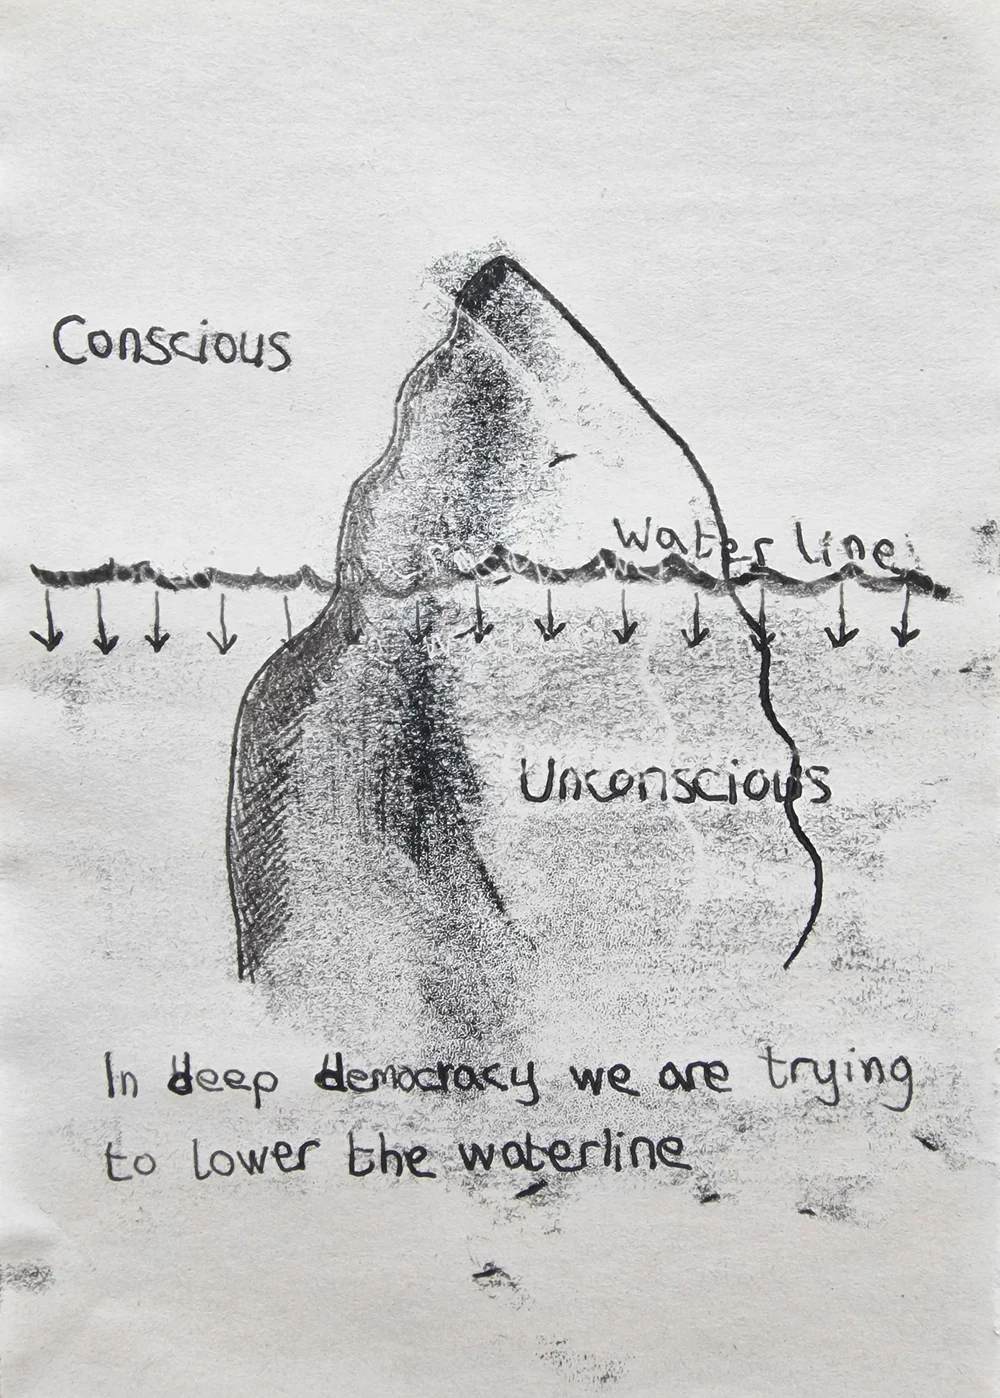 Conscious
Water line
Unconscious
In deep democracy we are trying
to lower the waterline